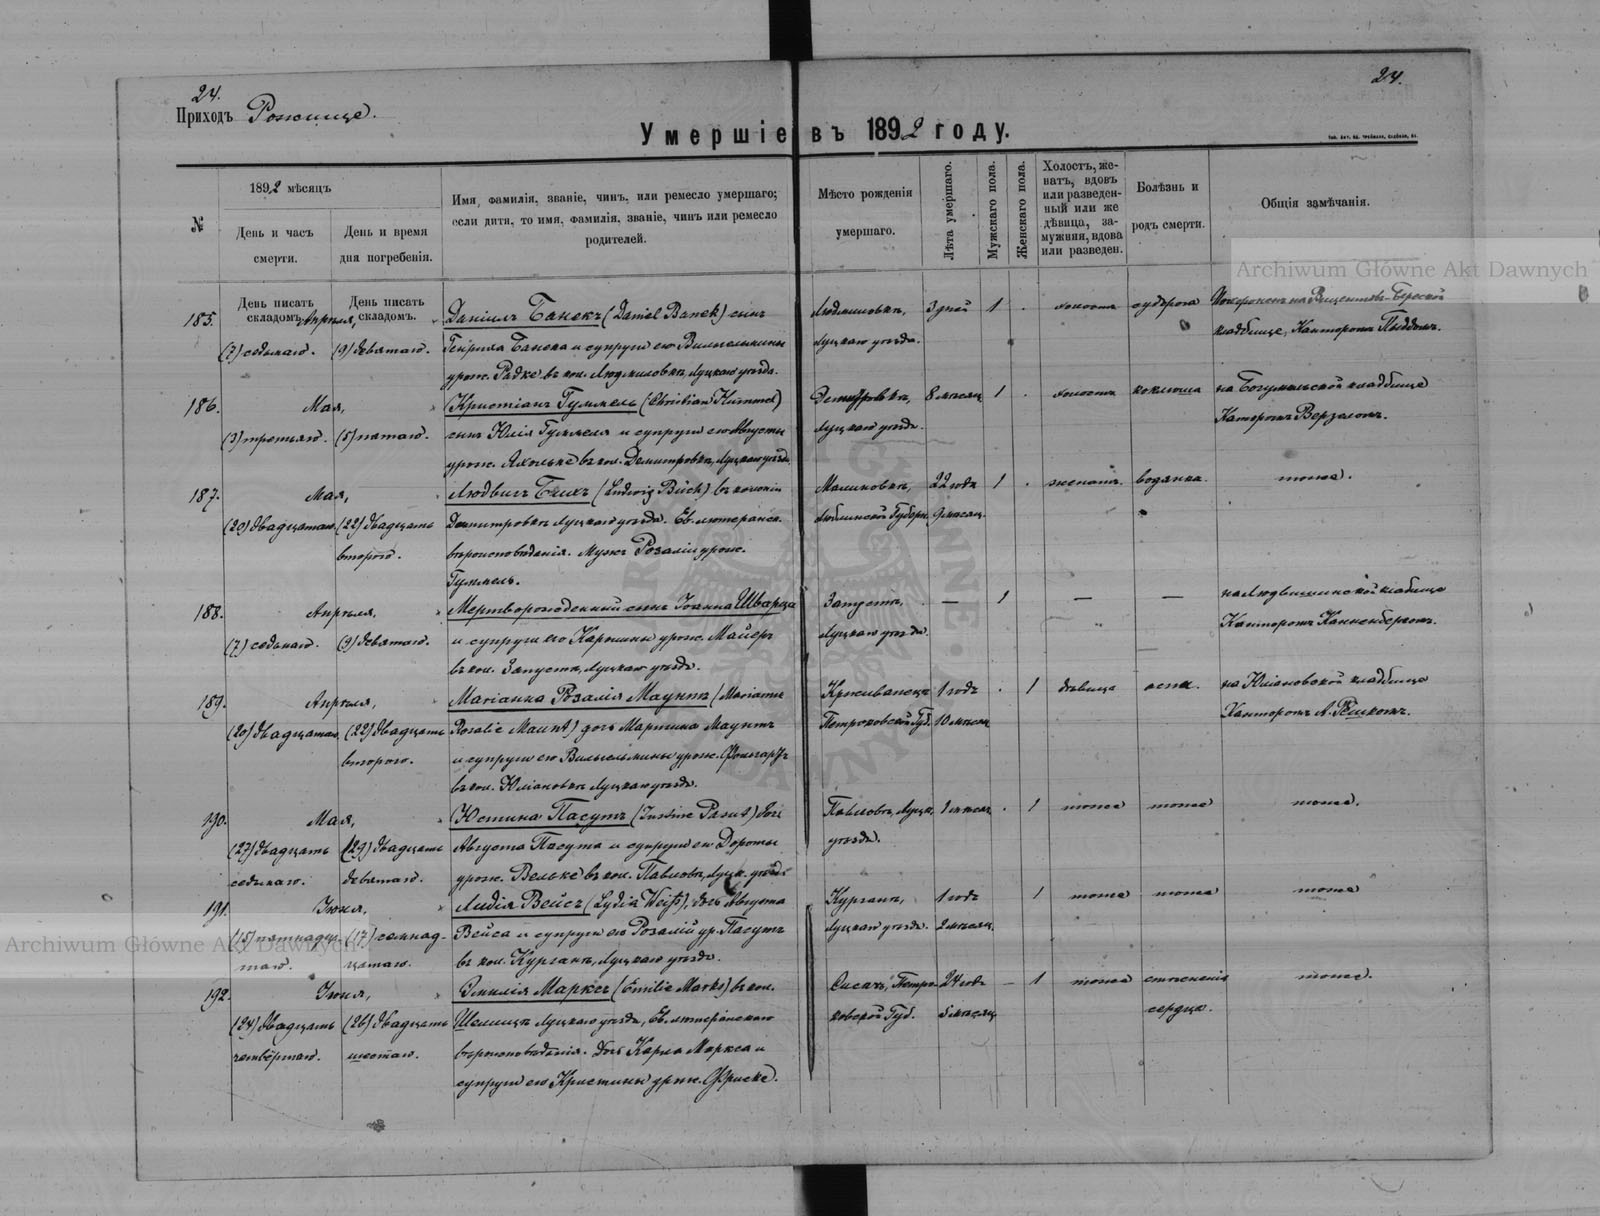 24.
24.
Приходъ Рожище.
Умершіе въ 1892 году.
№
1892 мѣсяцъ
День и часъ
смерти.
День и время
дня погребенія.
Имя, фамилія, званіе, чинъ, или ремесло умершаго;
если дитя, то имя, фамилія, званіе, чинъ или ремесло
родителей.
Мѣсто рожденія
умершаго.
Лѣта умершаго.
Мужскаго пола.
Женскаго пола.
Холостъ, же-
натъ, вдовъ
или разведен-
ный или же
дѣвица, за-
мужняя, вдова
или разведен.
Болѣзнь и
родъ смерти.
Общія замѣчанія.
Archiwum Główne Akt Dawnych
День писать
складомъ.
День писать
складомъ.
185. Апрѣля, Даніилъ Банекъ (Daniel Banek) сынъ Людмиловка, 3 дней 1 . холостъ судорога
(7) седьмаго. (9) девятаго. Генриха Банека и супруги его Вильгельмины Луцкаго уѣзда. кладбище, Канторомъ
урож. Радке въ кол. Людмиловкѣ, Луцкаго уѣзда.
186. Мая, Христіанъ Гуммель (Christian Hummel) 8 мѣсяц. 1 . холостъ коклюшъ на кладбище
(3) третьяго. (5) пятаго. сынъ Юлія Гуммеля и супруги его Августы Луцкаго уѣзда. Канторомъ
урож. въ кол. Дмитровкѣ, Луцкаго уѣзда.
187. Мая, Людвигъ Бихъ (Ludwig Büch) въ колоніи Малиновка, 22 года 1 . женатъ. водянка. тоже.
(20) двадцатаго. (22) двадцать Дмитровкѣ Луцкаго уѣзда. Ев. лютеранск. Люблинской Губерн. 9 мѣсяц.
втораго. вѣроисповѣданія. Мужъ Розаліи урож.
Гуммель.
188. Апрѣля, Мертворожденный сынъ Іоанна Шварца Запустъ, — 1 — — кладбище
(7) седьмаго. (9) девятаго. и супруги его Каролины урож. Майеръ Луцкаго уѣзда. Канторомъ Канненбергомъ.
въ кол. Запустъ, Луцкаго уѣзда.
189. Апрѣля, Маріанна Розалія Маунтъ (Marianne 1 годъ . 1 дѣвица оспа. на Юліановской кладбище
(20) двадцатаго. (22) двадцать Rosalie Maunt) дочь Мартина Маунтъ Петроковской Губ. 10 мѣсяц. Канторомъ А.
втораго. и супруги его Вильгельмины урож.
въ кол. Юліановкѣ Луцкаго уѣзда.
190. Мая, Юстина Пасутъ (Justine Pasut) дочь Павловка, Луцк. 1 мѣсяц. . 1 тоже тоже тоже.
(27) двадцать (29) двадцать Августа Пасута и супруги его Дороты уѣзда.
седьмаго. девятаго. урож. Вельке въ кол. Павловкѣ, Луцк. уѣзда
191. Іюня, Лидія Вейсъ (Lydia Weiß), дочь Августа Курганъ, 1 годъ 1 тоже тоже тоже
(15) пятнадца- (17) семнад- Вейса и супруги его Розаліи ур. Пасутъ Луцкаго уѣзда. 2 мѣсяц.
таго. цатаго. въ кол. Курганъ, Луцкаго уѣзда.
Archiwum Główne Akt Dawnych
192. Іюня, Эмилія Марксъ (Emilie Marks) въ кол. Петро- 24 года — 1 тоже стѣсненіе тоже.
(24) двадцать (26) двадцать Луцкаго уѣзда, Ев. лютеранскаго ковской Губ. 5 мѣсяц. сердца.
четвёртаго. шестаго. вѣроисповѣданія. Дочь Карла Маркса и
супруги его Христины урож. Фриске.